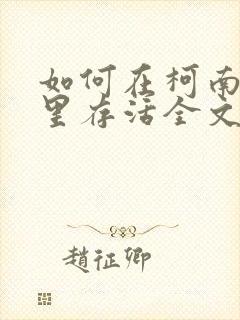 如何在柯南
里存活全文
趙征卿